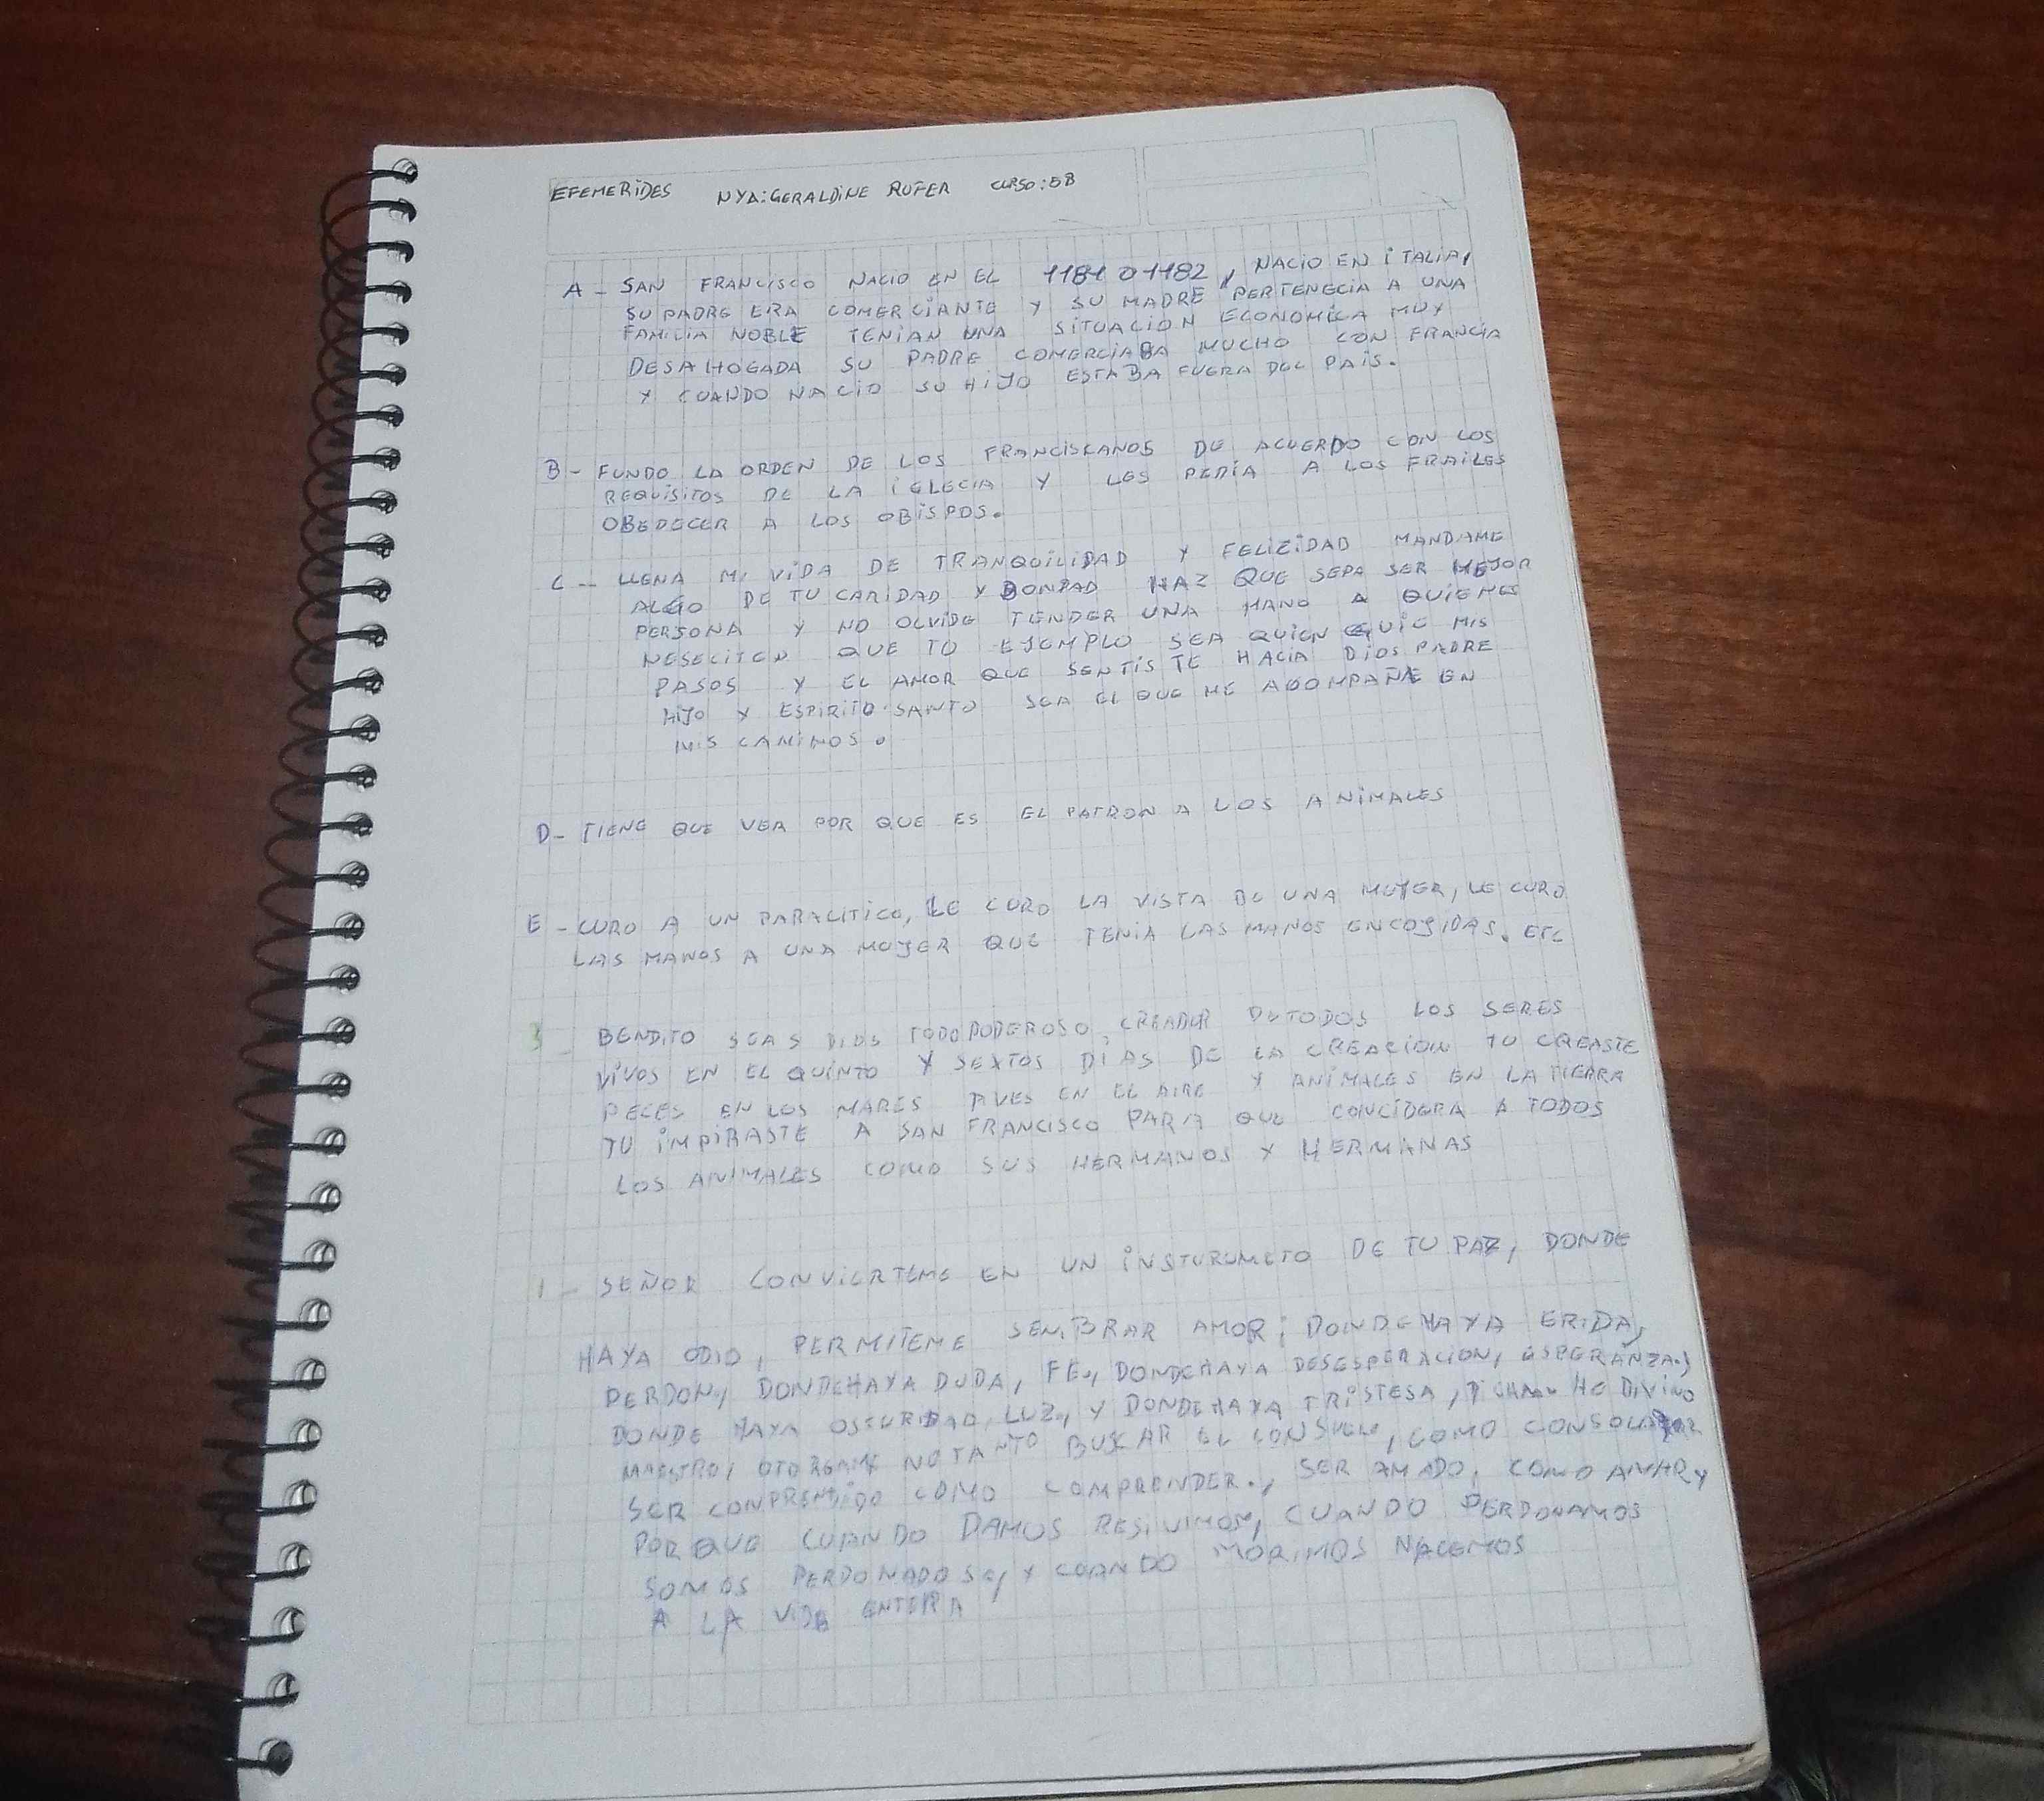 EFEMERIDES NYA: GERALDINE RUFER CURSO: 5B
A - SAN FRANCISCO NACIO EN EL 1181 O 1182, NACIO EN ITALIA,
SU PADRE ERA COMERCIANTE Y SU MADRE PERTENECIA A UNA
FAMILIA NOBLE TENIAN UNA SITUACION ECONOMICA MUY
DESAHOGADA SU PADRE COMERCIABA MUCHO CON FRANCIA
Y CUANDO NACIO SU HIJO ESTABA FUERA DEL PAIS.
B - FUNDO LA ORDEN DE LOS FRANCISCANOS DE ACUERDO CON LOS
REQUISITOS DE LA IGLECIA Y LES PEDIA A LOS FRAILES
OBEDECER A LOS OBISPOS.
C - LLENA MI VIDA DE TRANQUILIDAD Y FELIZIDAD MANDAME
ALGO DE TU CARIDAD Y BONDAD HAZ QUE SEPA SER MEJOR
PERSONA Y NO OLVIDE TENDER UNA MANO A QUIENES
NESECITEN QUE TU EJEMPLO SEA QUIEN GUIE MIS
PASOS Y EL AMOR QUE SENTISTE HACIA DIOS PADRE
HIJO Y ESPIRITO SANTO SEA EL QUE ME ACOMPAÑE EN
MIS CAMINOS.
D - TIENE QUE VER POR QUE ES EL PATRON A LOS ANIMALES
E - CURO A UN PARALITICO, LE CURO LA VISTA DE UNA MUJER, LE CURO
LAS MANOS A UNA MUJER QUE TENIA LAS MANOS ENCOJIDAS. ETC
3 - BENDITO SEAS DIOS TODOPODEROSO CREADOR DE TODOS LOS SERES
VIVOS EN EL QUINTO Y SEXTOS DIAS DE LA CREACION TU CREASTE
PECES EN LOS MARES AVES EN EL AIRE Y ANIMALES EN LA TIERRA
TU IMPIRASTE A SAN FRANCISCO PARA QUE CONCIDERA A TODOS
LOS ANIMALES COMO SUS HERMANOS Y HERMANAS
1 - SEÑOR CONVIERTEME EN UN INSTURUMETO DE TU PAZ, DONDE
HAYA ODIO, PERMITEME SEMBRAR AMOR; DONDE HAYA ERIDA,
PERDON, DONDE HAYA DUDA, FE, DONDE HAYA DESESPERACION, ESPERANZA,
DONDE HAYA OSCURIDAD, LUZ, Y DONDE HAYA TRISTESA, DIVINO
MAESTRO, OTORGAME NO TANTO BUSCAR EL CONSUELO, COMO CONSOLAR
SER COMPRENDIDO COMO COMPRENDER., SER AMADO, COMO AMAR Y
PORQUE CUANDO DAMOS RESIVIMOS, CUANDO PERDONAMOS
SOMOS PERDONADOS, Y CUANDO MORIMOS NACEMOS
A LA VIDA ENTERA